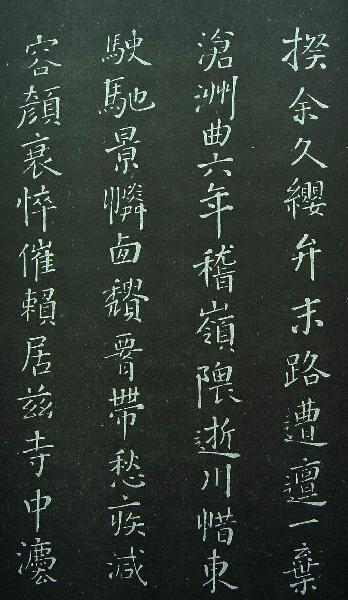 揆余久纓弁末路遭邅一棄
滄洲曲六年稽嶺隈逝川惜東
駛馳景憐卥穨要帶愁疾減
容顏衰悴催賴居茲寺中灋